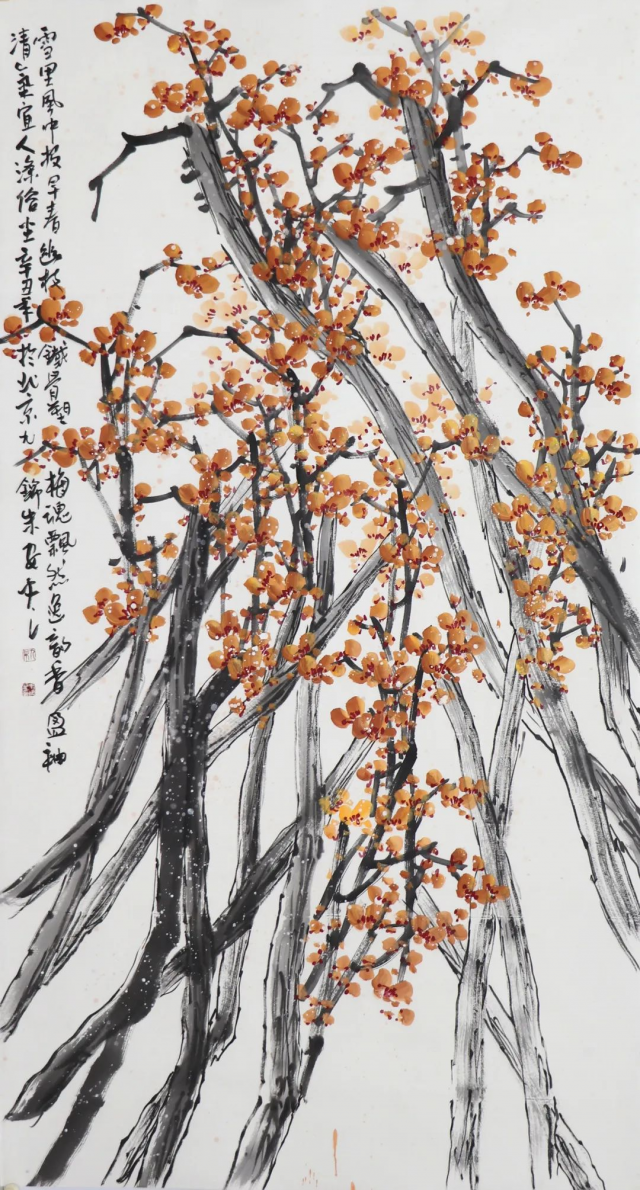 雪里風中报早春幽枝鐵骨塑梅魂飄然逸韵香盈袖
清氣宜人滌俗尘辛丑年於北京九錦朱